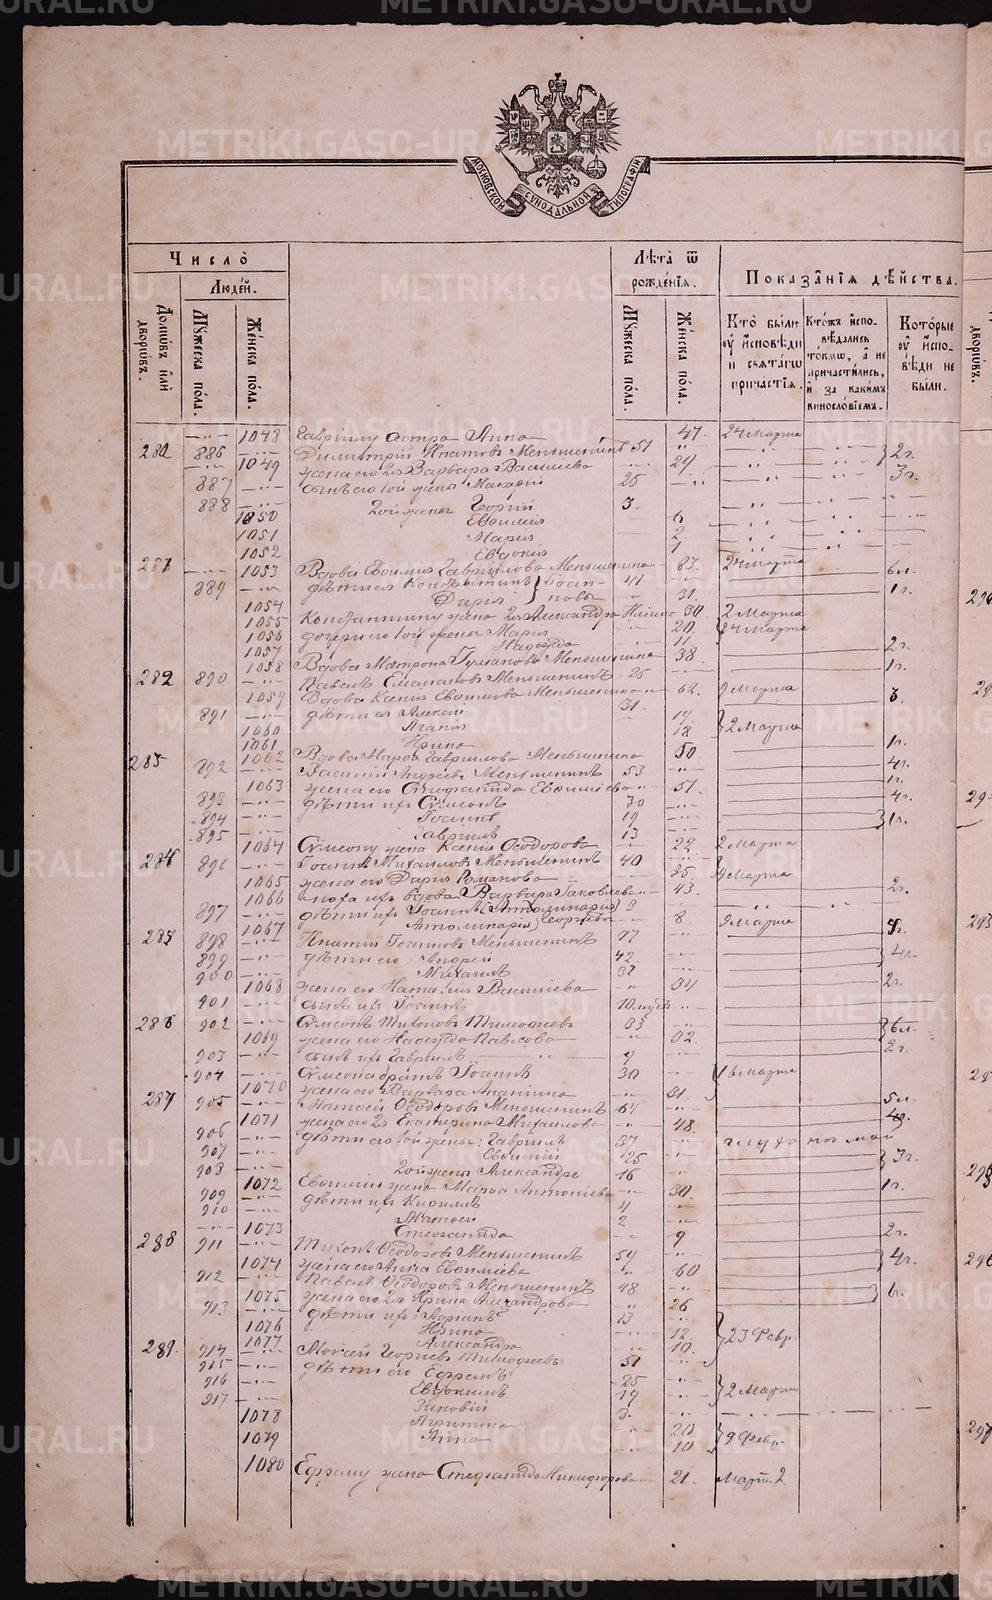 МОСКОВСКОЙ СѴНОДАЛЬНОЙ ТИПОГРАФІИ
Число
Людей.
Домовъ или дворовъ.
Мужеска пола.
Женска пола.
Лѣта ѿ рожденія.
Мужеска пола.
Женска пола.
Показанія дѣйства.
Кто были у исповѣди и святаго причастія.
Ктожъ исповѣдались токмо, а не причастились, и за какимъ винословіемъ.
Которые у исповѣди не были.
1048 Гавріилу сестра Анна 47. 24 Марта
280 886 Димитрій Игнатовъ Меньшенинъ 51 2г.
1049 жена его 2я Варвара Василіева 24 3г.
887 сынъ его 1ой жены Макарій 26
888 2ой жены Георгій 3.
1050 Евфимія 6
1051 Марія 2
1052 Евдокія 1
281 1053 Вдова Евфимія Гаврилова Меньшенина 83. 24 Марта
889 дѣти ея Константинъ 41 6л.
1054 Дарія 31. 1г.
1055 Константину жена 2я Александра 30. 2 Марта
1056 дочери его 1ой жены Марія 20. 24 Марта
1057 Надежда 11
1058 Вдова Матрона Меньшенина 38 2г.
282 890 Павелъ Меньшенинъ 25 1г.
1059 Вдова Ксенія Евфимова Меньшенина 62. 9 Марта
891 дѣти ея Алексій 31. 3.
1060 Агапія 19 2 Марта
1061 Ирина 18
1062 Вдова Марфа Гаврилова Меньшенина 50 1г.
283 892 Василій Андреевъ Меньшенинъ 53 4г.
1063 жена его Стефанида Евфиміева 51. 1г.
893 дѣти ихъ Сѵмеонъ 30 4г.
894 Іоаннъ 19 1г.
895 Гавріилъ 13
1064 Сѵмеону жена Ксенія Ѳеодорова 22 2 Марта
284 896 Іоаннъ Михаиловъ Меньшенинъ 40
1065 жена его Дарія Романова 35. 9 Марта
1066 сноха ихъ вдова Варвара Іаковлева 43. 2г.
897 дѣти ихъ Іоаннъ 9
1067 Аполинарія 8. 9 Марта
285 898 Игнатій Іоанновъ Меньшенинъ 77
899 дѣти его: Андрей 42 4г.
900 Михаилъ 37
1068 жена его Наталія Василіева 34 2г.
901 сынъ ихъ Іоаннъ
286 902 Сѵмеонъ Тихоновъ Тимофеевъ 33 6л.
1069 жена его Надежда Павлова 32. 2г.
903 сынъ ихъ Гавріилъ 9
904 Сѵмеона братъ Іоаннъ 30 Марта
1070 жена его Варвара 31.
287 905 Матѳей Ѳеодоровъ Меньшенинъ 64 5л.
1071 жена его 2я Екатерина Михаилова 48.
906 дѣти его 1ой жены: Гавріилъ 37 глухонѣмой
907 Евфимій 25
908 2ой жены Александръ 16 3г.
1072 Евфимію жена Марѳа Антоніева 30. 1г.
909 дѣти ихъ Кириллъ 4
910 Матѳей 2
1073 Стефанида 9 2г.
288 911 Тихонъ Ѳеодоровъ Меньшенинъ 59
1074 жена его Анна Евфиміева 60 4г.
912 Павелъ Ѳеодоровъ Меньшенинъ 48
1075 жена его 2я Ирина Александрова 26
913 дѣти ихъ: Адріанъ 13
1076 Ирина 12 23 Февр.
1077 Александра 10.
289. 914 Моисей Георгіевъ Тимофеевъ 51
915 дѣти его Ефремъ 25
916 Евдокимъ 19 2 Марта
917 Зиновій 3.
1078 Агрипина 20
1079 Анна 10 9 Февр.
1080 Ефрему жена Стефанида Никифорова 21. Марта 2